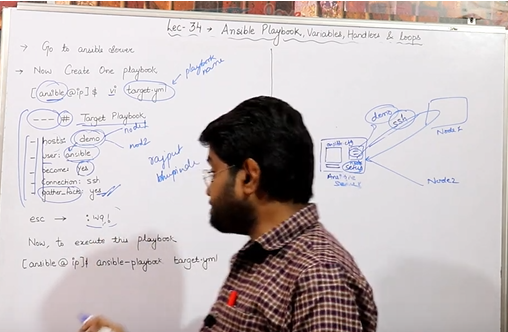 Lec-34 → Ansible Playbook, Variables, Handlers & Loops
→ Go to ansible server
→ Now Create One playbook
[ansible@ip]$ vi target.yml
playbook name
--- # Target Playbook
- hosts: demo
user: ansible
become: yes
connection: ssh
gather_facts: yes
node1
node2
rajput
bhupinder
esc → :wq!
Now, to execute this playbook
[ansible@ip]$ ansible-playbook target.yml
demo
ssh
Node1
Node2